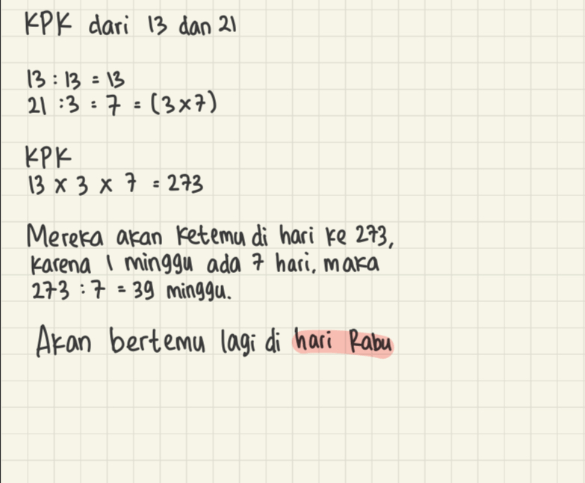 KPK dari 13 dan 21
13 : 13 = 13
21 : 3 = 7 = (3x7)
KPK
13 x 3 x 7 = 273
Mereka akan ketemu di hari ke 273,
karena 1 minggu ada 7 hari, maka
273 : 7 = 39 minggu.
Akan bertemu lagi di hari Rabu